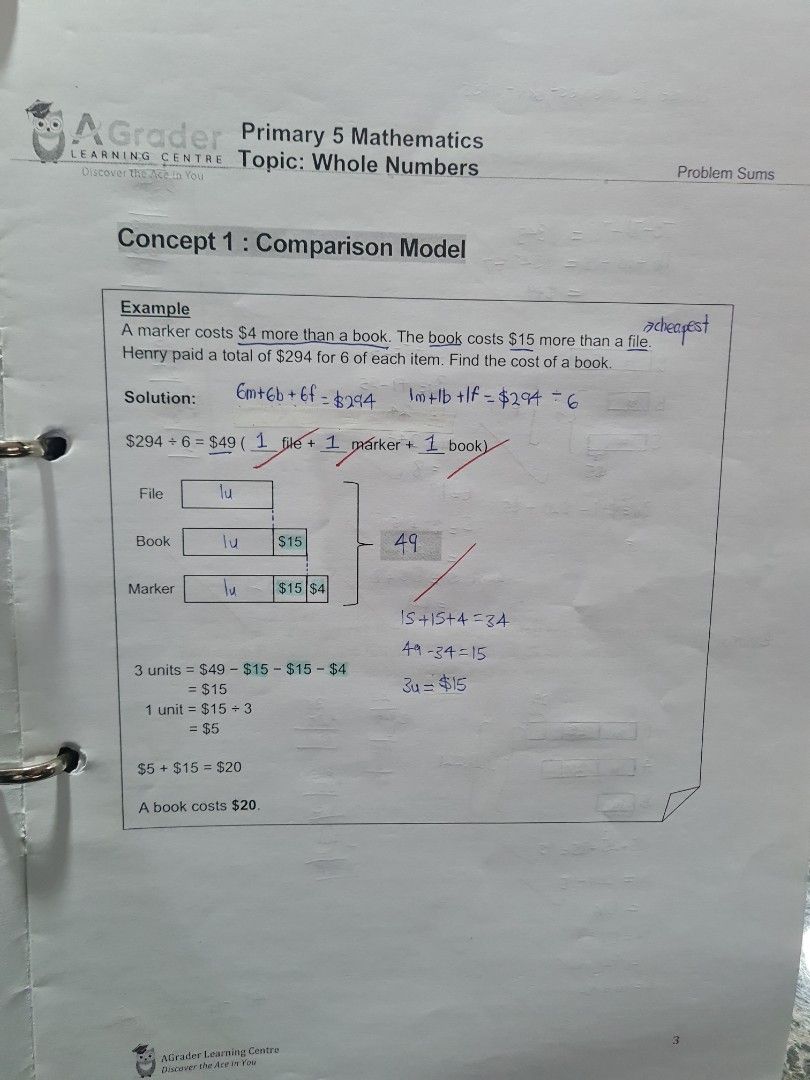 AGrader
LEARNING CENTRE
Discover the Ace in You
Primary 5 Mathematics
Topic: Whole Numbers
Problem Sums
Concept 1 : Comparison Model
Example
→cheapest
A marker costs $4 more than a book. The book costs $15 more than a file.
Henry paid a total of $294 for 6 of each item. Find the cost of a book.
Solution: 6m+6b+6f = $294 1m+1b+1f = $294 ÷ 6
$294 ÷ 6 = $49 ( 1 file + 1 marker + 1 book)
File 1u
Book 1u $15 49
Marker 1u $15 $4
15+15+4=34
49-34=15
3u=$15
3 units = $49 – $15 – $15 – $4
= $15
1 unit = $15 ÷ 3
= $5
$5 + $15 = $20
A book costs $20.
3
AGrader Learning Centre
Discover the Ace in You